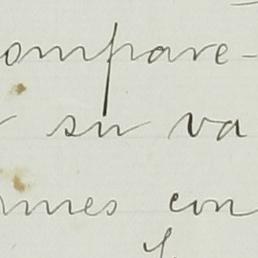 compare-
su va
mes con